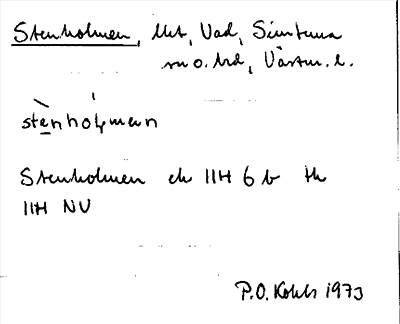 Stenholmen, Ukt, Vad, Simtuna
sn o. hd, Västm. l.
stenholmen
Stenholmen ek 11H 6 b tk
11H NV
P.O. Kohls 1973